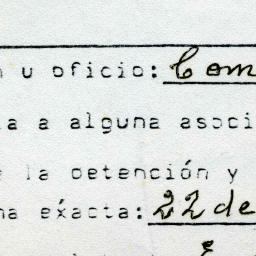 u oficio: Com
a alguna asoci
la detención y
ha exácta: 22 de